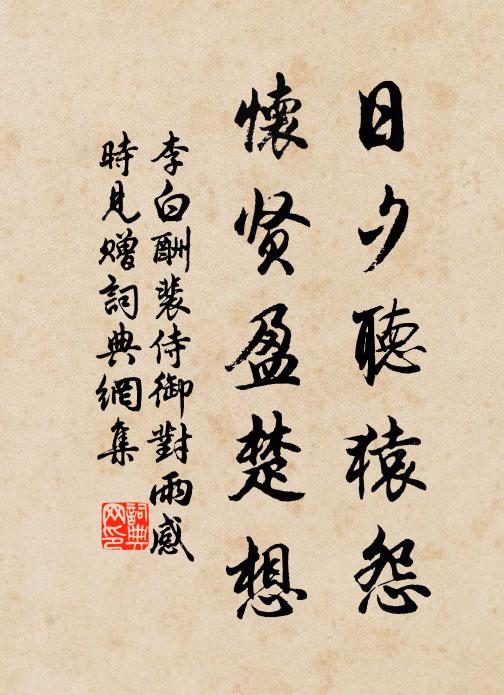 日夕聽猿怨
懷贤盈楚想
李白酬裴侍御對雨感
時見赠詞典網集
詞典网印